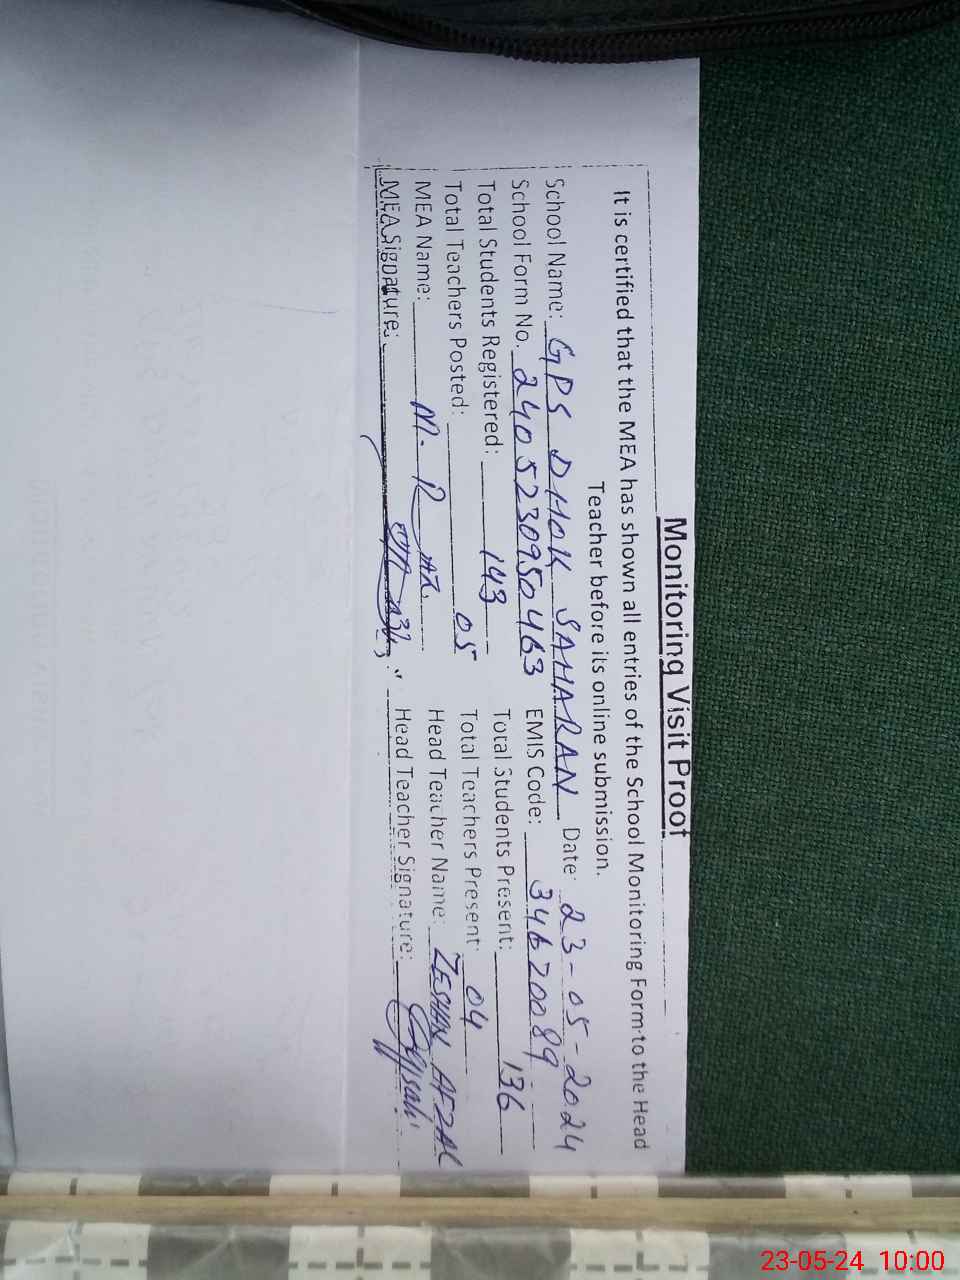 Monitoring Visit Proof
It is certified that the MEA has shown all entries of the School Monitoring Form to the Head
Teacher before its online submission.
School Name: GPS DHOK SAHARAN Date: 23-05-2024
School Form No. 2405230950463 EMIS Code: 34620089
Total Students Registered: 143 Total Students Present: 136
Total Teachers Posted: 05 Total Teachers Present: 04
MEA Name: M. R Head Teacher Name: ZESHAN AFZAL
MEA Signature: Head Teacher Signature:
23-05-24 10:00